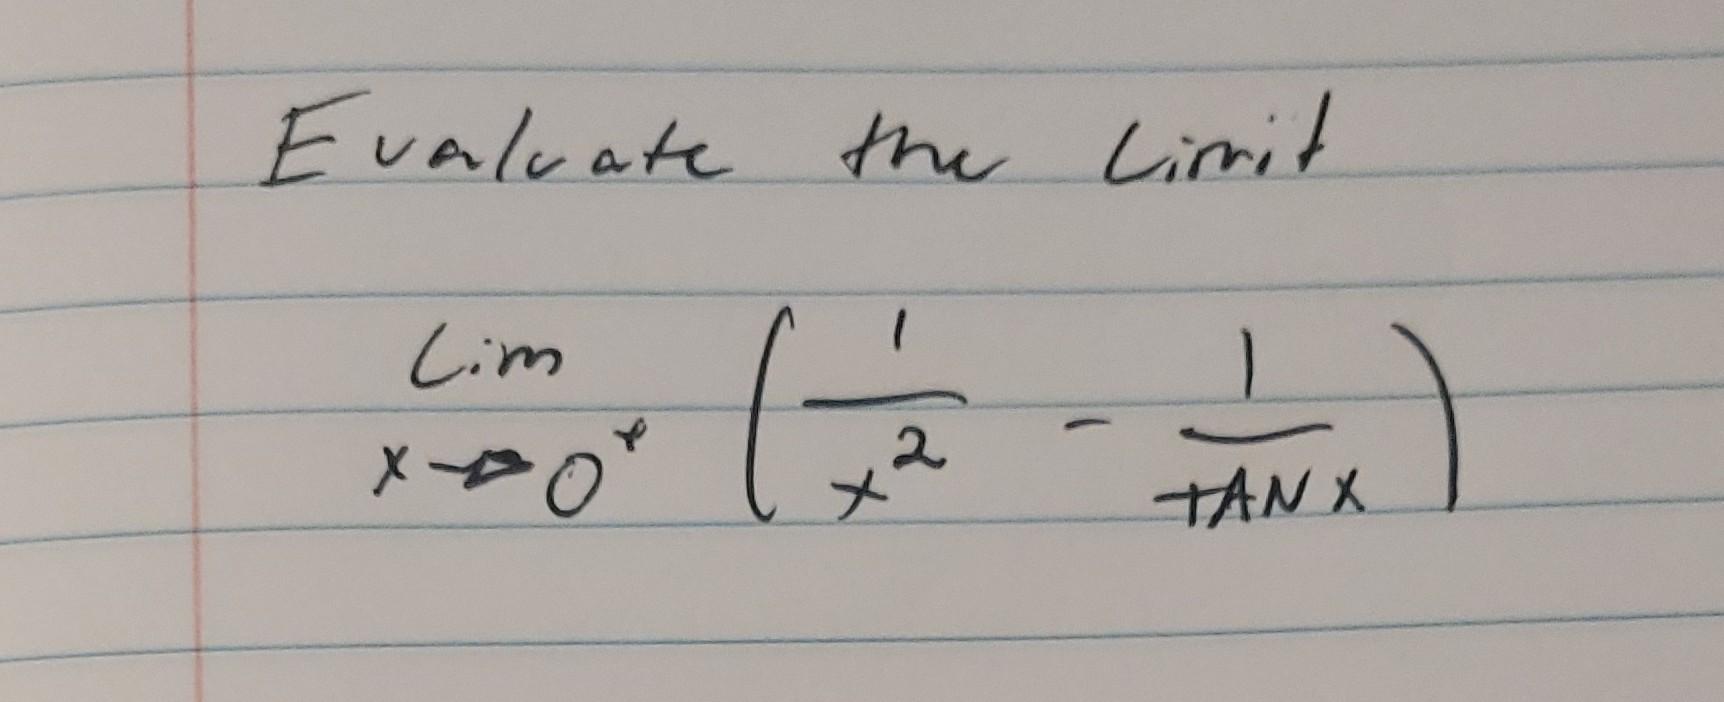 Evaluate the Limit
Lim x→0⁺ ( 1/x² - 1/TANX )